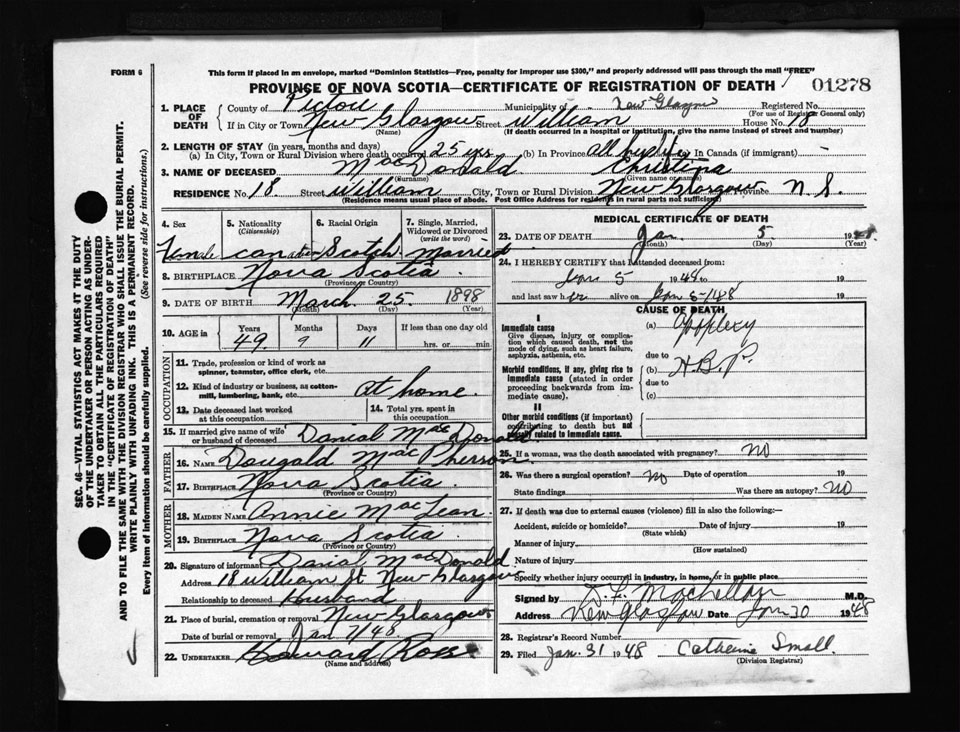 FORM 6
This form if placed in an envelope, marked "Dominion Statistics—Free, penalty for improper use $300," and properly addressed will pass through the mail "FREE"
PROVINCE OF NOVA SCOTIA—CERTIFICATE OF REGISTRATION OF DEATH
01278
1. PLACE OF DEATH
County of Pictou Municipality of New Glasgow Registered No.
(For use of Registrar General only)
If in City or Town New Glasgow Street William House No. 18
(Name) (If death occurred in a hospital or institution, give the name instead of street and number)
2. LENGTH OF STAY (in years, months and days)
(a) In City, Town or Rural Division where death occurred 25 yrs (b) In Province all her life In Canada (if immigrant) —
3. NAME OF DECEASED MacDonald Christina
(Surname) (Given name or names)
RESIDENCE No. 18. Street William City, Town or Rural Division New Glasgow Province N. S.
(Residence means usual place of abode. Post Office Address for residents in rural parts not sufficient)
4. Sex Female
5. Nationality (Citizenship) Canadian
6. Racial Origin Scotch
7. Single, Married, Widowed or Divorced (write the word) Married
8. BIRTHPLACE Nova Scotia
(Province or Country)
9. DATE OF BIRTH March 25. 1898
(Month) (Day) (Year)
10. AGE in Years Months Days If less than one day old
49 9 11 hrs. or min.
OCCUPATION
11. Trade, profession or kind of work as spinner, teamster, office clerk, etc.
12. Kind of industry or business, as cotton-mill, lumbering, bank, etc. at home.
13. Date deceased last worked at this occupation
14. Total yrs. spent in this occupation
15. If married give name of wife or husband of deceased Danial MacDonald
FATHER
16. NAME Dougald MacPherson
17. BIRTHPLACE Nova Scotia
(Province or Country)
MOTHER
18. MAIDEN NAME Annie MacLean
19. BIRTHPLACE Nova Scotia
(Province or Country)
20. Signature of informant Danial MacDonald
Address 18 William St New Glasgow
Relationship to deceased Husband
21. Place of burial, cremation or removal New Glasgow
Date of burial or removal Jan 7/48
22. UNDERTAKER Howard Ross
(Name and address)
MEDICAL CERTIFICATE OF DEATH
23. DATE OF DEATH Jan. 5 19
(Month) (Day) (Year)
24. I HEREBY CERTIFY that I attended deceased from:
Jan 5 1948 to 19
and last saw her alive on Jan 5-/48 19
CAUSE OF DEATH
I
Immediate cause
Give disease, injury or complication which caused death, not the mode of dying, such as heart failure, asphyxia, asthenia, etc.
(a) Applexy
due to
Morbid conditions, if any, giving rise to immediate cause (stated in order proceeding backwards from immediate cause).
(b) H.B.P.
due to
(c)
II
Other morbid conditions (if important) contributing to death but not causally related to immediate cause.
25. If a woman, was the death associated with pregnancy? NO
26. Was there a surgical operation? No Date of operation 19
State findings Was there an autopsy? NO
27. If death was due to external causes (violence) fill in also the following:—
Accident, suicide or homicide? Date of injury 19
(State which)
Manner of injury
(How sustained)
Nature of injury
Specify whether injury occurred in industry, in home, or in public place
Signed by MacLellan M.D.
Address New Glasgow Date Jan 30 1948
28. Registrar's Record Number
29. Filed Jan. 31 1948 Catherine Small.
(Division Registrar)
SEC. 46—VITAL STATISTICS ACT MAKES IT THE DUTY
OF THE UNDERTAKER OR PERSON ACTING AS UNDER-
TAKER TO OBTAIN ALL THE PARTICULARS REQUIRED
IN THE "CERTIFICATE OF REGISTRATION OF DEATH"
AND TO FILE THE SAME WITH THE DIVISION REGISTRAR WHO SHALL ISSUE THE BURIAL PERMIT.
WRITE PLAINLY WITH UNFADING INK. THIS IS A PERMANENT RECORD.
Every item of information should be carefully supplied. (See reverse side for instructions.)